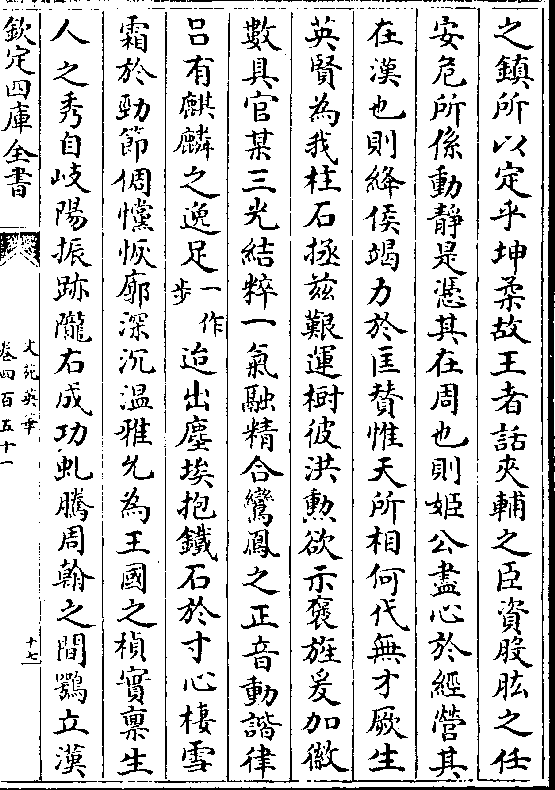 之鎮所以定乎坤柔故王者話夾輔之臣資股肱之任
安危所係動靜是憑其在周也則姬公盡心於經營其
在漢也則絳侯竭力於匡贊惟天所相何代無才厥生
英賢為我柱石拯兹艱運樹彼洪勲欲示褒旌爰加徽
數具官某三光結粹一氣融精合鸞鳳之正音動諧律
呂有麒麟之逸足一作步迨出塵埃抱鐵石於寸心棲雪
霜於勁節倜儻恢廓深沉溫雅允為王國之楨實稟生
人之秀自岐陽振跡隴右成功虬騰周翰之間鶚立漢
欽定四庫全書
文苑英華
卷四百五十一
十七